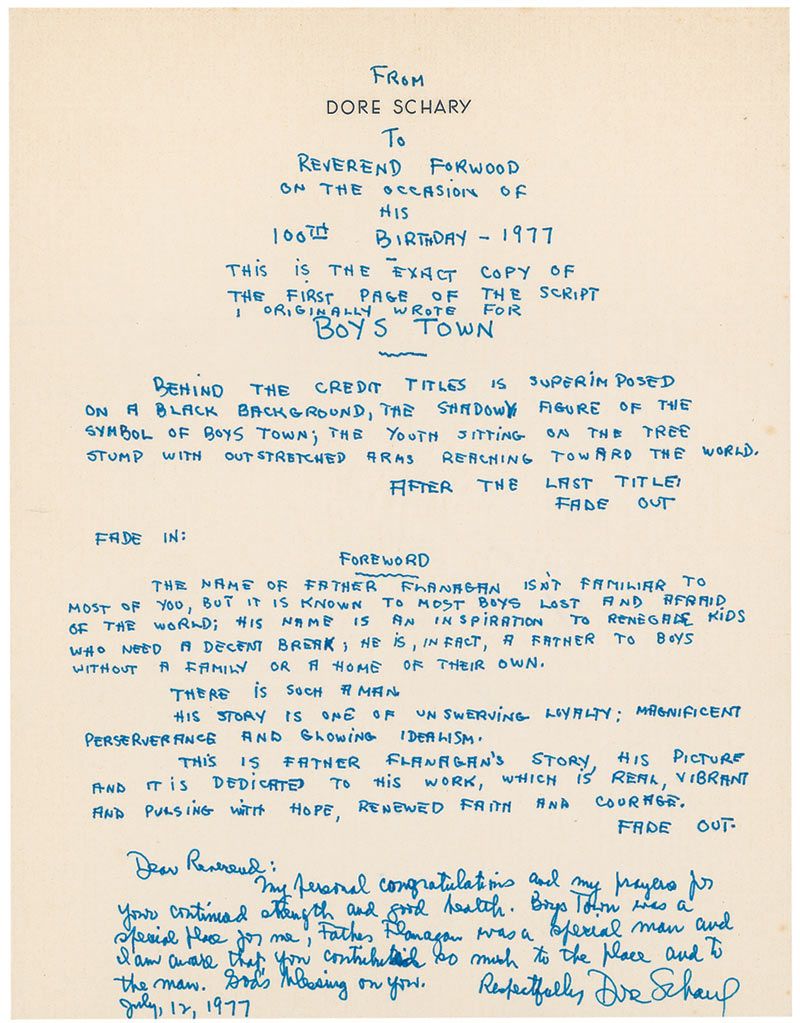 FROM
DORE SCHARY
TO
REVEREND FORWOOD
ON THE OCCASION OF
HIS
100TH BIRTHDAY - 1977
THIS IS THE EXACT COPY OF
THE FIRST PAGE OF THE SCRIPT
I ORIGINALLY WROTE FOR
BOYS TOWN
BEHIND THE CREDIT TITLES IS SUPERIMPOSED
ON A BLACK BACKGROUND, THE SHADOWY FIGURE OF THE
SYMBOL OF BOYS TOWN; THE YOUTH SITTING ON THE TREE
STUMP WITH OUTSTRETCHED ARMS REACHING TOWARD THE WORLD.
AFTER THE LAST TITLE:
FADE OUT
FADE IN:
FOREWORD
THE NAME OF FATHER FLANAGAN ISN'T FAMILIAR TO
MOST OF YOU, BUT IT IS KNOWN TO MOST BOYS LOST AND AFRAID
OF THE WORLD; HIS NAME IS AN INSPIRATION TO RENEGADE KIDS
WHO NEED A DECENT BREAK; HE IS, IN FACT, A FATHER TO BOYS
WITHOUT A FAMILY OR A HOME OF THEIR OWN.
THERE IS SUCH A MAN
HIS STORY IS ONE OF UNSWERVING LOYALTY; MAGNIFICENT
PERSERVERANCE AND GLOWING IDEALISM.
THIS IS FATHER FLANAGAN'S STORY, HIS PICTURE
AND IT IS DEDICATED TO HIS WORK, WHICH IS REAL, VIBRANT
AND PULSING WITH HOPE, RENEWED FAITH AND COURAGE.
FADE OUT.
Dear Reverend:
My personal congratulations and my prayers for
your continued strength and good health. Boys Town was a
special place for me, Father Flanagan was a special man and
I am aware that you contributed so much to the place and to
the man. God's blessing on you. Respectfully Dore Schary
July, 12, 1977